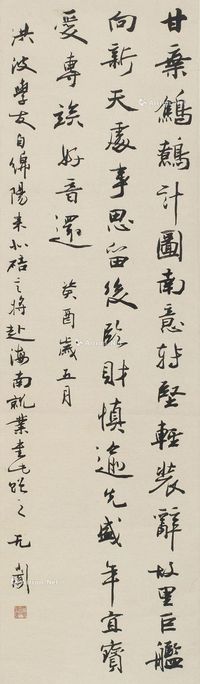 甘棄鷦鷯計圖南意轉堅輕裝辭故里巨艦
向新天處事思留後臨財慎逾先盛年宜寶
愛專竢好音還 癸酉歲五月
洪波學友自綿陽來北碚言將赴海南就業書此贈之 无聞